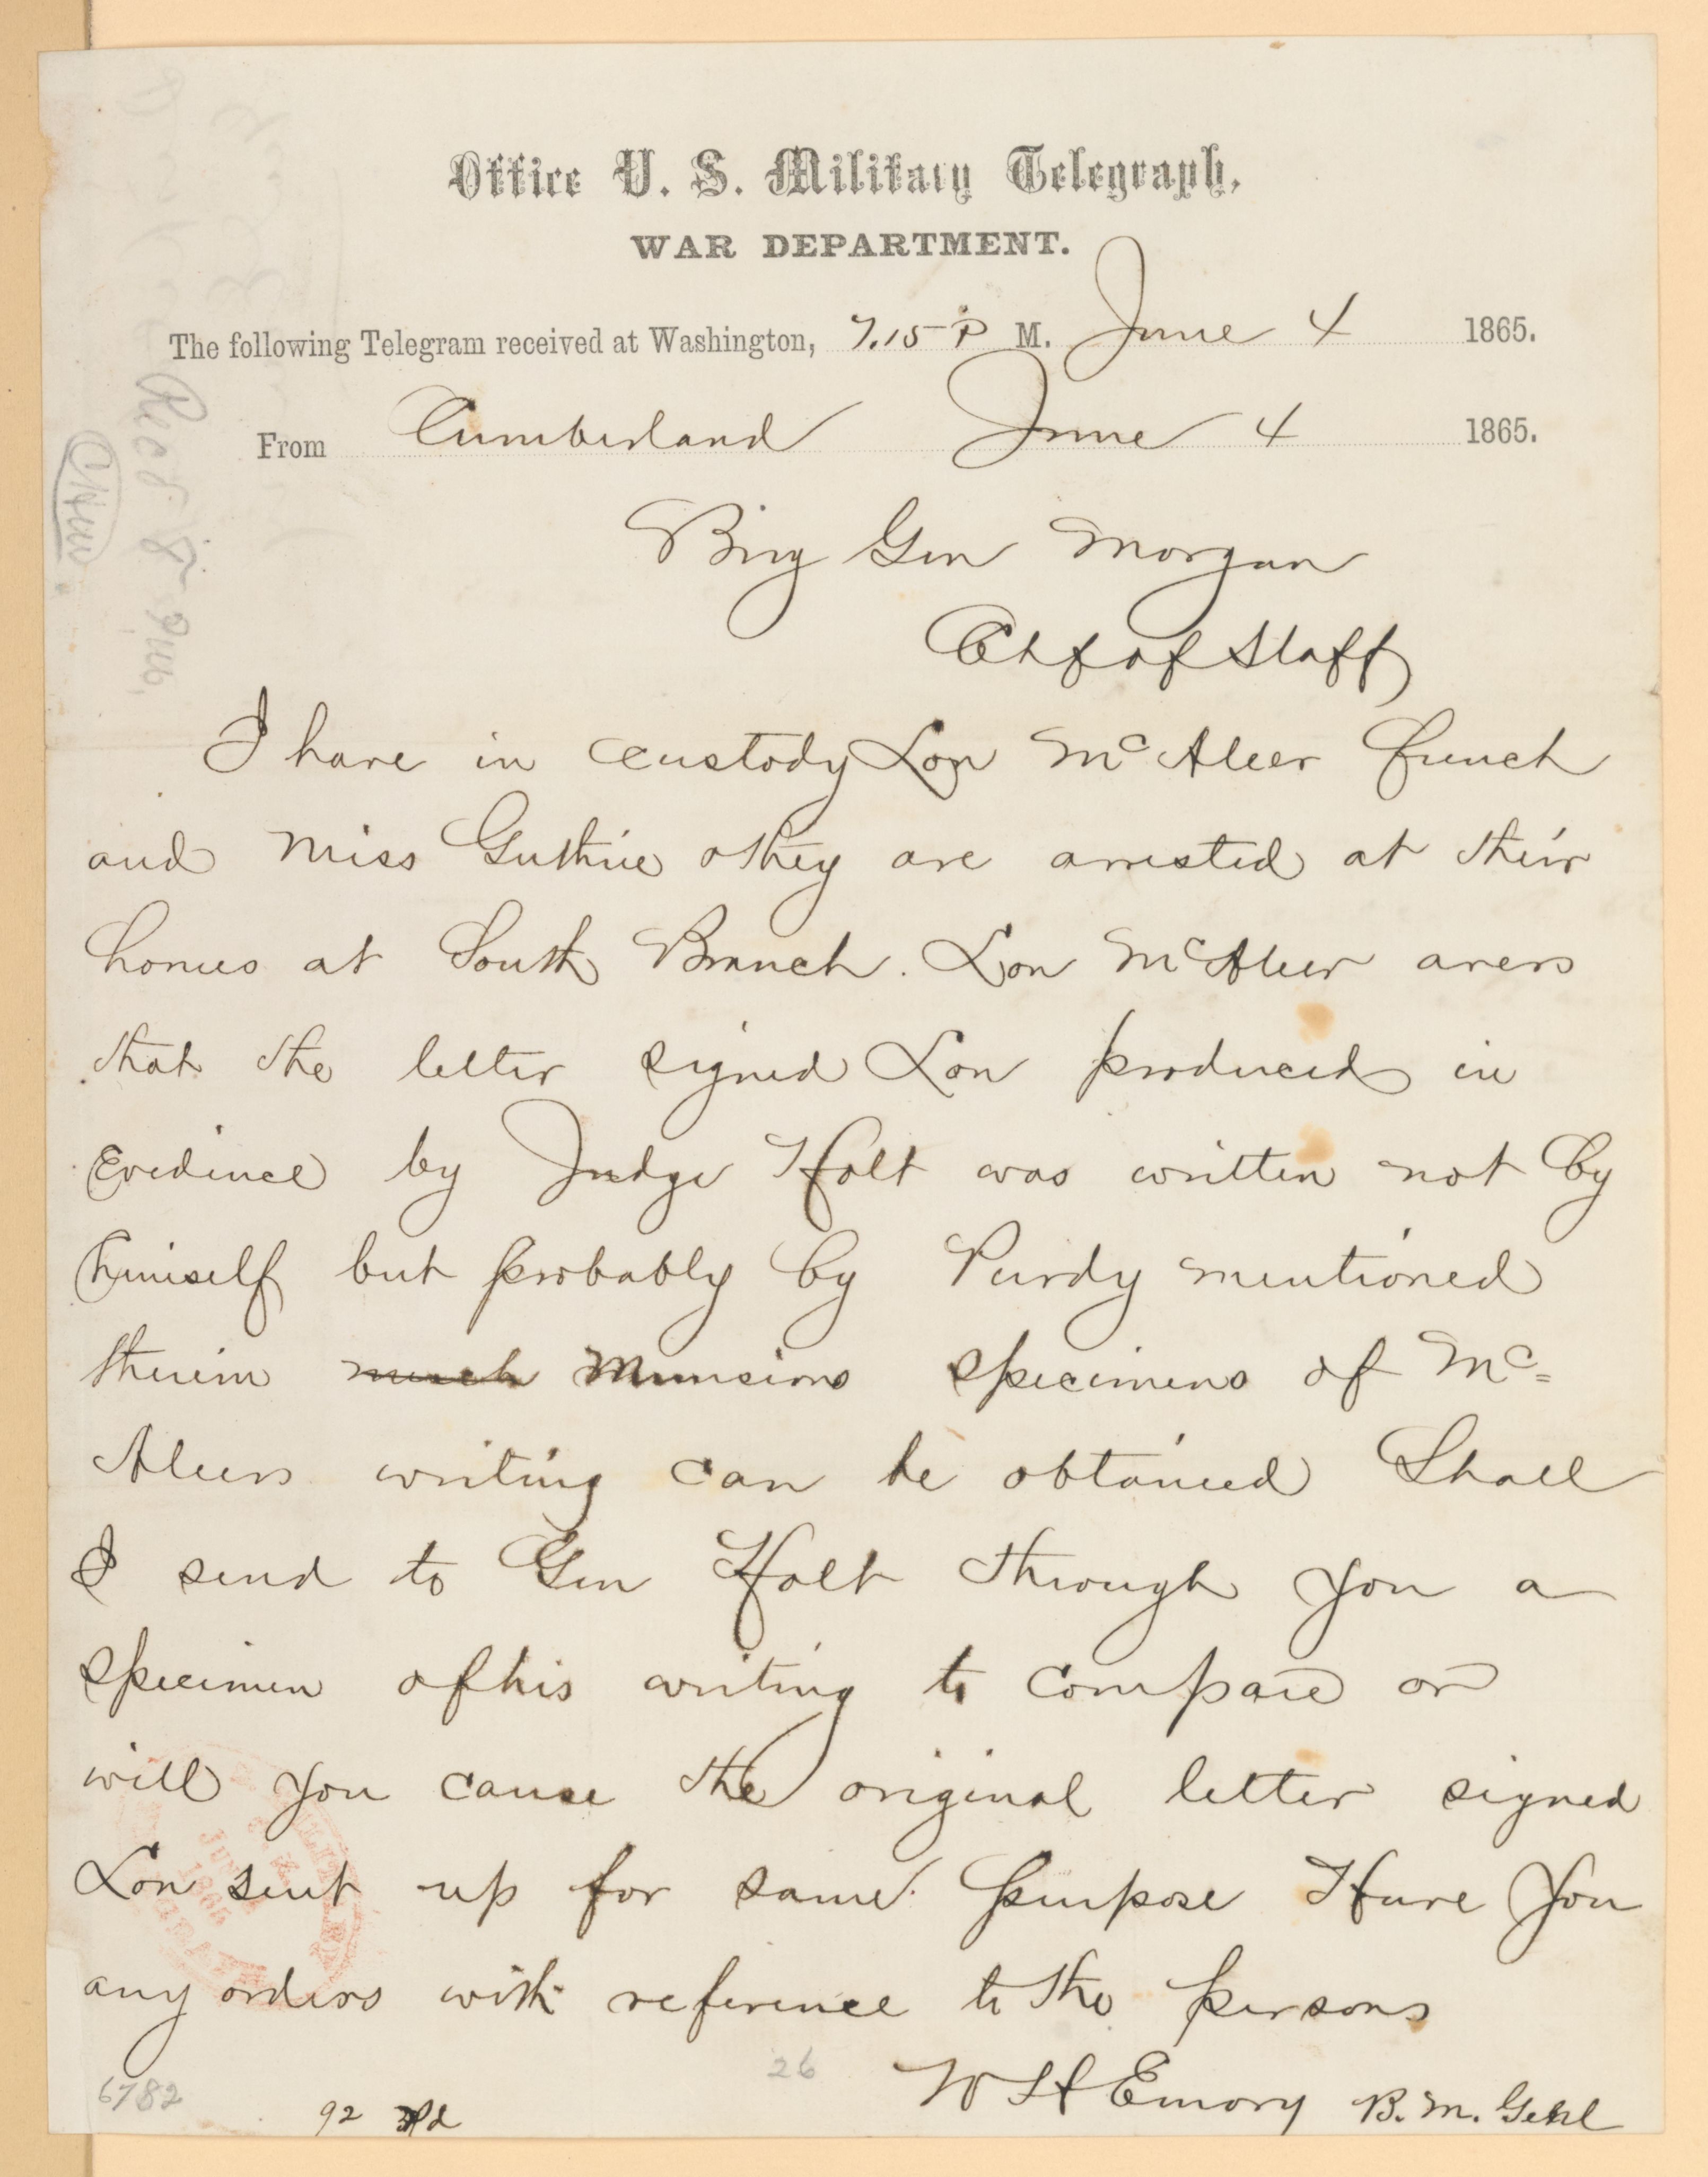 Office U. S. Military Telegraph,
WAR DEPARTMENT.
The following Telegram received at Washington, 7.15 P M. June 4 1865.
From Cumberland June 4 1865.
Brig Gen Morgan
Chf of Staff
I have in custody Lon McAleer French
and Miss Guthrie they are arrested at their
homes at South Branch. Lon McAleer avers
that the letter signed Lon produced in
Evidence by Judge Holt was written not by
himself but probably by Purdy mentioned
therein specimens of Mc=
Aleers writing can be obtained Shall
I send to Gen Holt through you a
specimen of his writing to compare or
will you cause the original letter signed
Lon sent up for same purpose Have you
any orders with reference to the persons
W H Emory B. M. Genl
26
6782
92 Pd
Recd 8